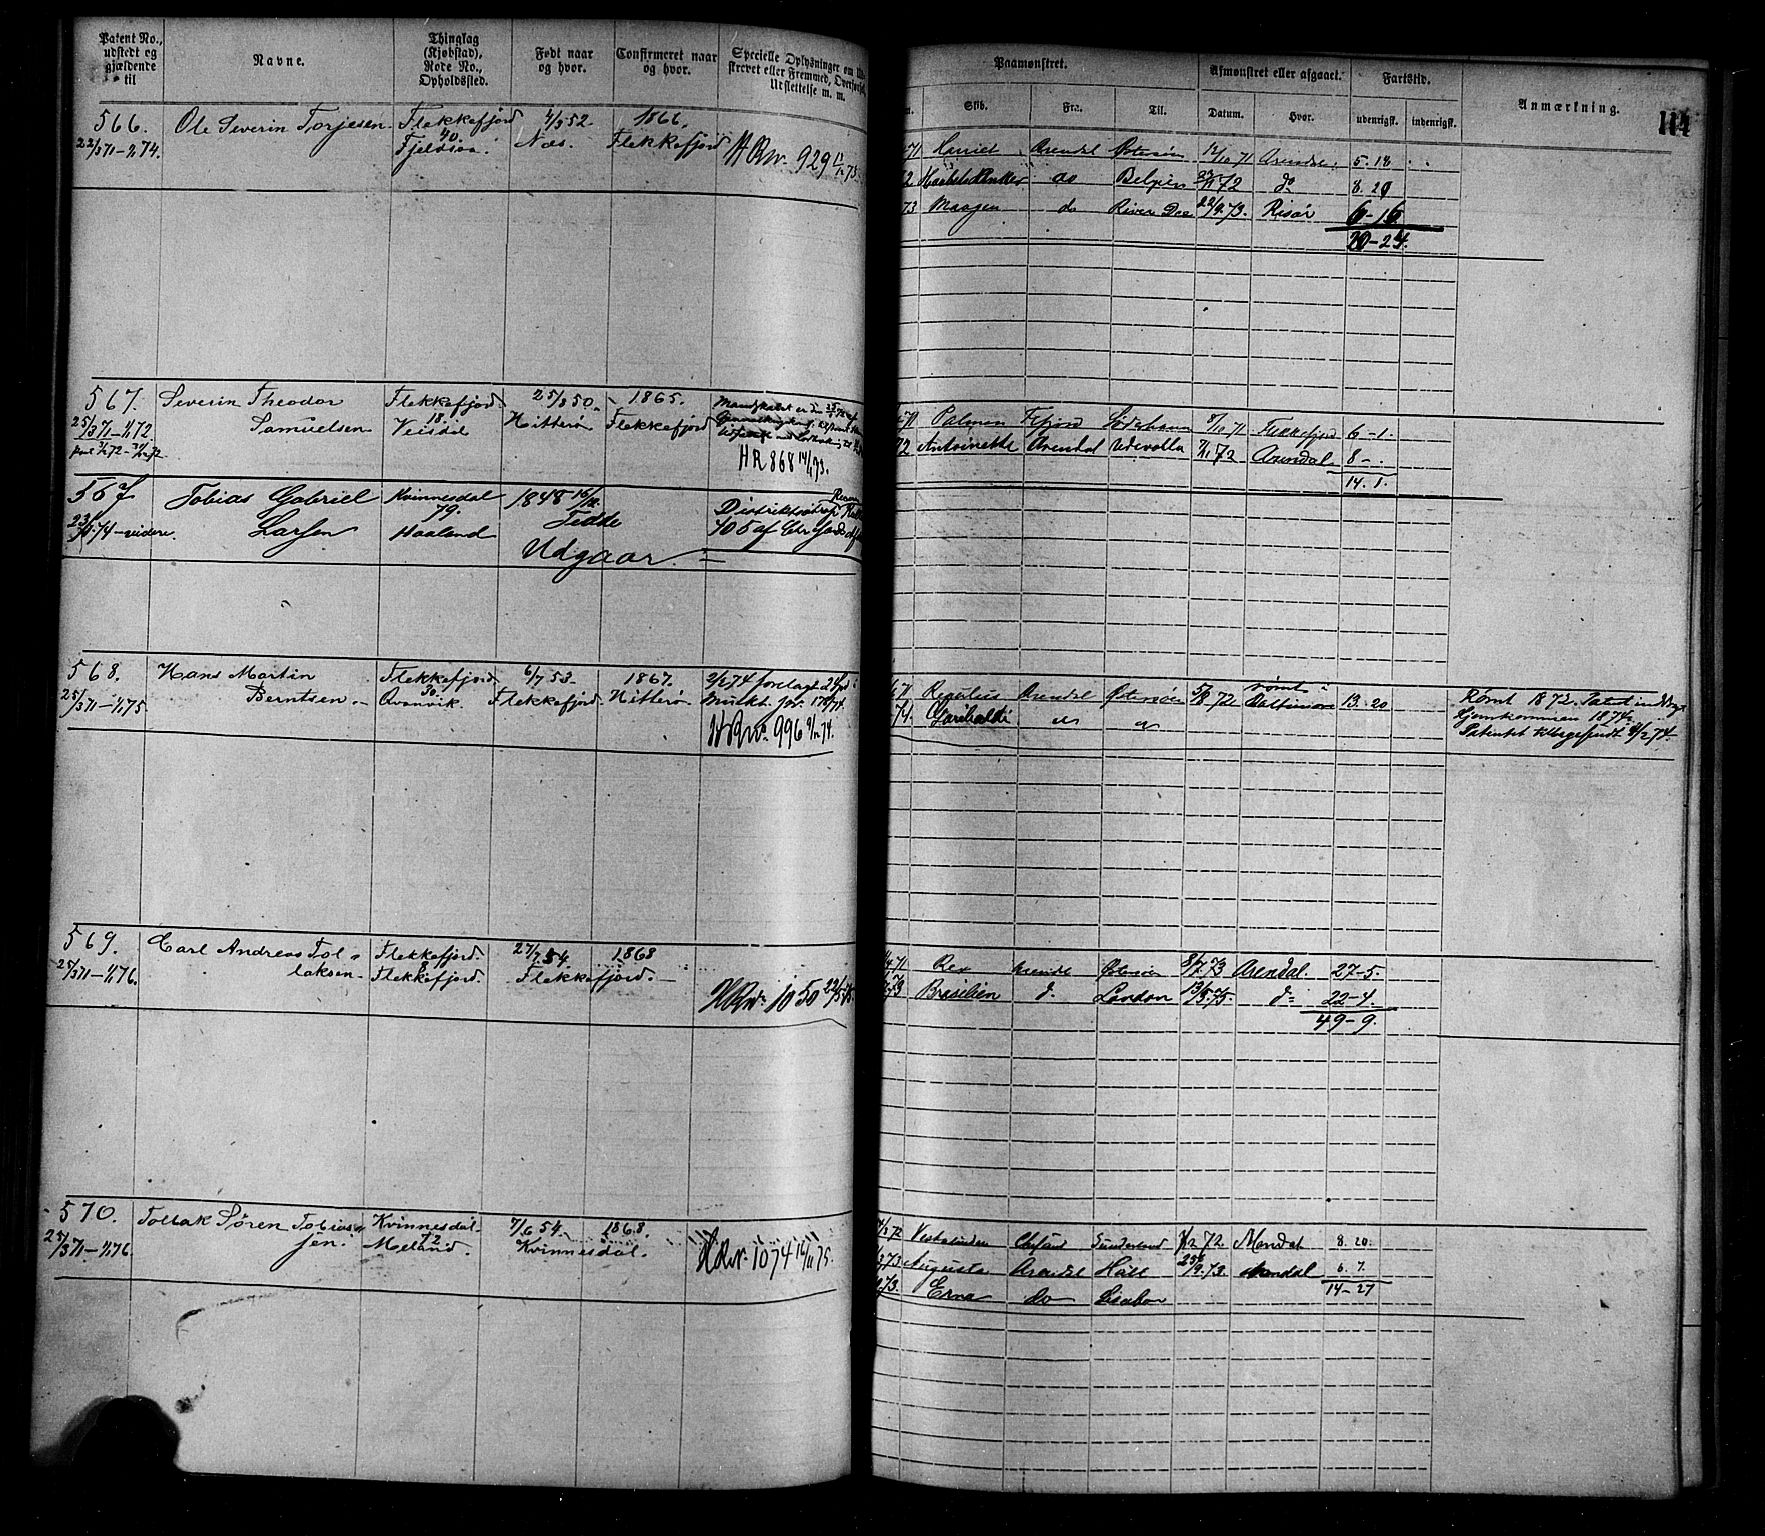 Patent No.,
udstedt og
gjældende
til
Navne.
Thinglag
(Kjøbstad),
Rode No.,
Opholdssted.
Født naar
og hvor.
Confirmeret naar
og hvor.
Specielle Oplysninger om
strevet eller Fremmed, Overførsel,
Udslettelse m. m.
Paamønstret.
Skib.
Fra.
Til.
Afmønstret eller afgaaet.
Datum.
Hvor.
Fartstid.
udenrigsk.
indenrigsk.
Anmærkning.
114
566.
22/3 71 - 1/1 74.
Ole Severin Torjesen
Flekkefjord
40.
Fjeldsaa.
4/3 52
Næs.
1866.
Flekkefjord
HRno. 929
71 Harriet Arendal Østersøen 12/10 71 Arendal 5-18
72 do Belgien 72 do 8. 29
73 Maagen do River Dee 22/9 73. Risør 6-16
20-24.
567.
25/3 71 - 1/1 72
Severin Theodor
Samuelsen
Flekkefjord
18.
Veisdal
25/8 50.
Hitterø
1865.
Flekkefjord
HR 868 14/1 73.
71 Palmen 8/10 71 Flekkefjord 6-1.
72 Antoinette Arendal Udevalla 7/11 72 Arendal 8-
14. 1.
567
23/4 74 - videre.
Tobias Gabriel
Larsen
Kvinnesdal
79.
Haaland
1848 16/12
Fedde
Udgaar.
568.
25/3 71 - 1/1 75
Hans Martin
Berntsen.
Flekkefjord
30.
Qvanvik.
6/7 53.
Flekkefjord.
1867.
Hitterø
HRno. 996 9/12 74.
71 Regulus Arendal Østersøen 5/8 72 rømt i
Baltimore 13. 20
74. Garibaldi do do
Rømt 1872. Patent
Hjemkommen 1874.
Patentet tilbagesendt 4/2 74.
569.
25/3 71 - 1/1 76.
Carl Andreas Tol-
laksen
Flekkefjord.
8
Flekkefjord.
27/7 54.
Flekkefjord.
1868
HRno. 1050 22/5 75
71 Rex Arendal Østersøen 8/7 73 Arendal. 27-5.
73 Brasilien do London 13/3 75. do 22-4.
49-9.
570.
25/3 71 - 1/1 76.
Tollak Søren Tobias-
sen.
Kvinnesdal
42
Meland.
7/6 54.
Kvinnesdal.
1868.
HRnr. 1074 14/11 75.
72 Sunderland 72 Mandal 8. 20.
73 Augusta Arendal Hull 25/9 73. Arendal 6. 7.
73. Erna do Lisabon 14-27